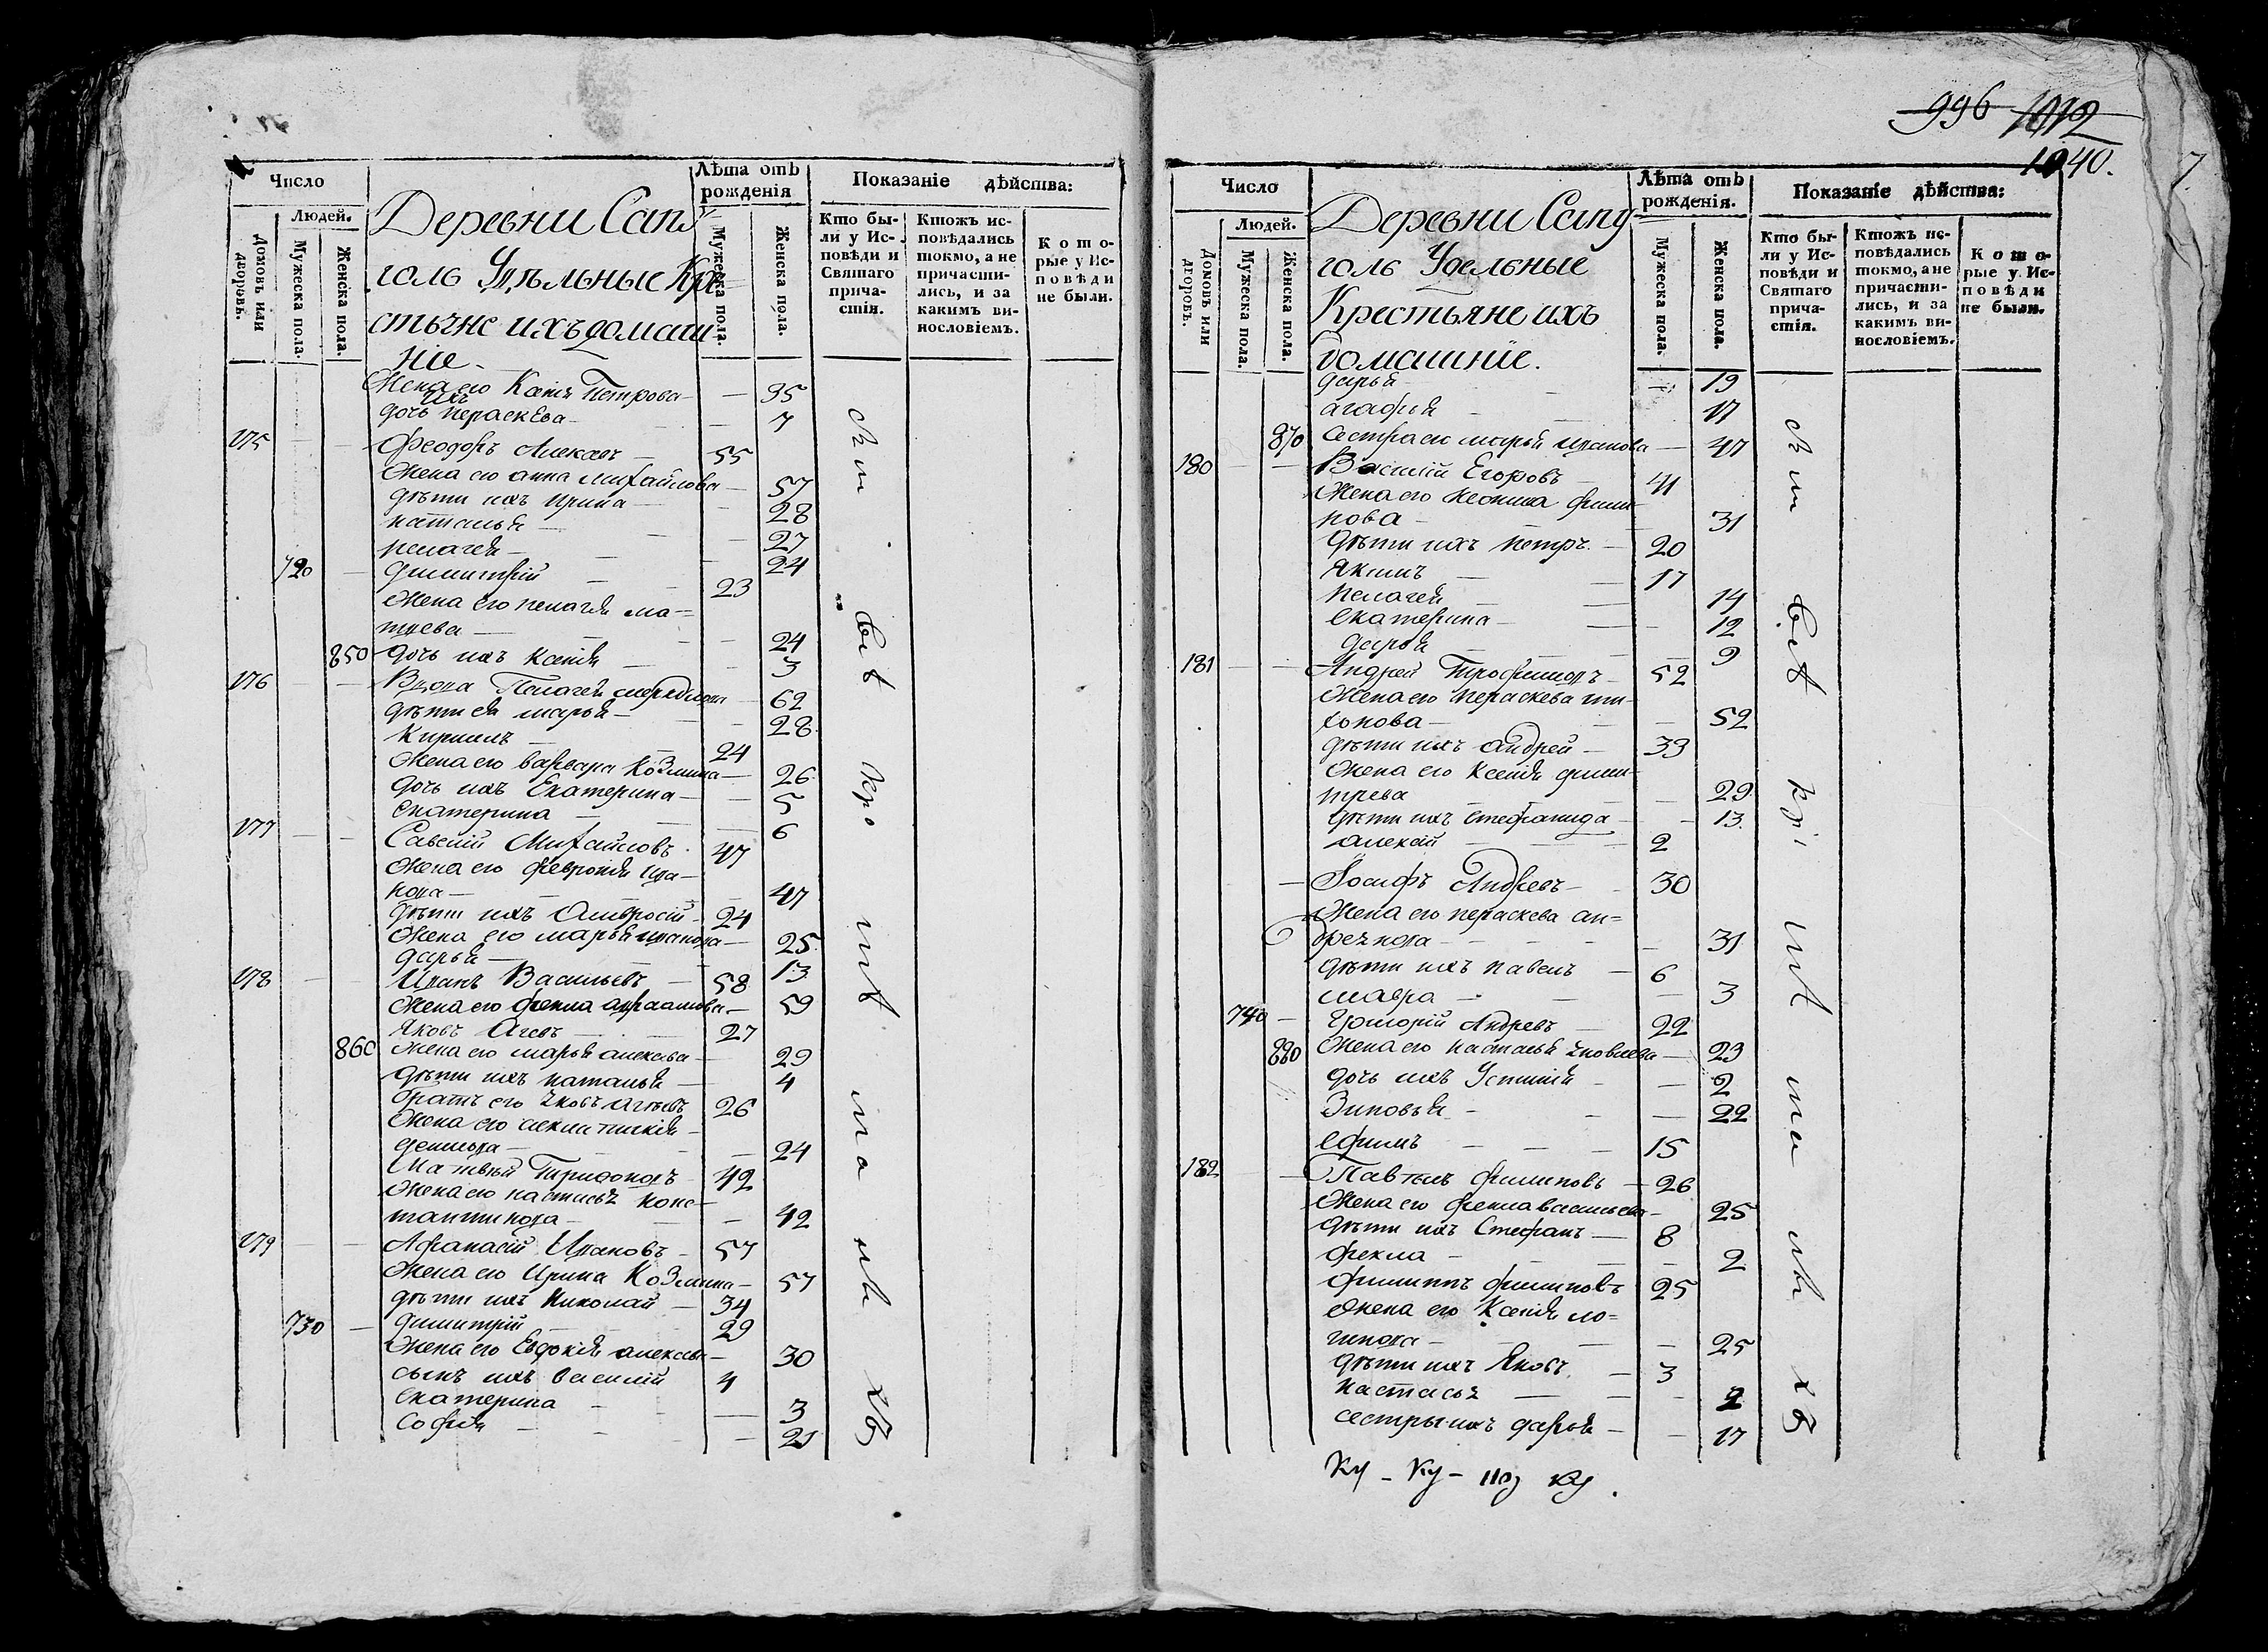 Число
Людей.
Домовъ или дворовъ.
Мужеска пола.
Женска пола.
Деревни Сапу
голь Удѣльные Кре=
стьяне ихъ домаш
ніе.
Лѣта отъ рожденія
Мужеска пола.
Женска пола.
Показаніе дѣйства:
Кто бы-
ли у Ис-
повѣди и
Святаго
прича-
стія.
Ктожъ ис-
повѣдались
токмо, а не
причасти-
лись, и за
какимъ ви-
нословіемъ.
Кото-
рые у Ис-
повѣди
не были.
Жена его Кат Петрова — 35
ихъ
дочь Параскева — 7
175 Феодоръ Алекса — 55
Жена его анна Михайлова — 57
дѣти ихъ Ирина — 28
наталья — 27
пелагея — 24
720 димитрій — 23
Жена его пелагея ма=
тѳева — 24
850 дочь ихъ Ксенія — 3
176 Вдова Пелагея — 62
дѣти ея марья — 28
Кирилъ — 24
Жена его варвара Козмина — 26
дочь ихъ Екатерина — 5
екатерина — 6
177 Савелій Михайловъ 47
Жена его февронія Ива-
нова — 47
дѣти ихъ Амвросій 24
Жена его марья иванова — 25
дарья — 13
178 Иванъ Васильевъ — 58
Жена его фекла авраамова — 59
Яковъ 27
860 Жена его марья алексева 29
дѣти ихъ наталья — 4
братъ его 26
Жена его
денисова — 24
Матвѣй Трифоновъ 42
Жена его настасья конс-
тантинова — 42
179 Афанасій Ивановъ 57
Жена его Ирина Козмина — 57
дѣти ихъ Николай — 34
730 димитрій 29
Жена его Евдокія алексева — 30
сынъ ихъ василій 4
екатерина — 3
софія — 21
996 1012
1040.
7
Число
Людей.
Домовъ или дворовъ.
Мужеска пола.
Женска пола.
Деревни Сапу
голь Удельные
Крестьяне ихъ
домашніе.
Лѣта отъ рожденія.
Мужеска пола.
Женска пола.
Показаніе дѣйства:
Кто бы-
ли у Ис-
повѣди и
Святаго
прича-
стія.
Ктожъ ис-
повѣдались
токмо, а не
причасти-
лись, и за
какимъ ви-
нословіемъ.
Кото-
рые у Ис-
повѣди
не были.
дарья 19
агафья — 17
870 сестра его марья иванова — 47
180 Василій Егоровъ 41
Жена его фили
пова — 31
дѣти ихъ петръ — 20
якимъ — 17
пелагея — 14
екатерина — 12
дарья — 9
181 Андрей Трофимовъ — 52
Жена его параскева ти-
хонова — 52
дѣти ихъ андрей — 33
Жена его Ксенія дими-
трева — 29
дѣти ихъ стефанида — 13
алексій — 2
Іосифъ Андревъ — 30
Жена его параскева ан=
дреянова — 31
дѣти ихъ павелъ — 6
мавра — 3
740 Григорій Андревъ — 22
880 Жена его настасья яковлева — 23
дочь ихъ Устинія — 2
Зиновья — 22
ефимъ — 15
182 Павелъ филиповъ — 26
Жена его фекла васильева — 25
дѣти ихъ Стефанъ — 8
фекла — 2
филиппъ филиповъ 25
Жена его Ксенія ло=
гинова — 25
дѣти ихъ Яковъ — 3
настасья — 2
сестры ихъ дарья — 17